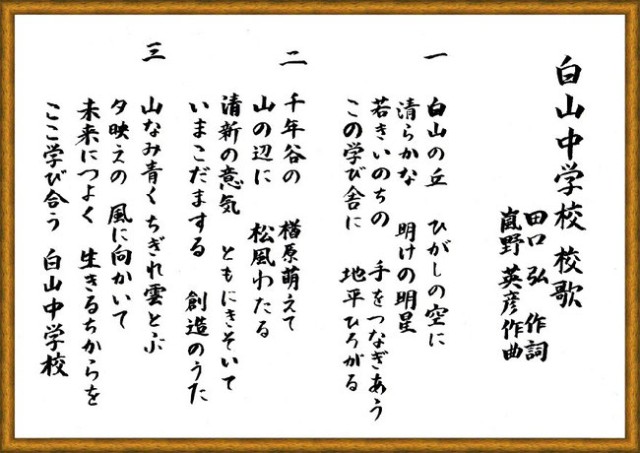 白山中学校 校歌
田口 弘 作詞
嵐野 英彦 作曲
一 白山の丘 ひがしの空に
清らかな 明けの明星
若きいのちの 手をつなぎあう
この学び舎に 地平ひろがる
二 千年谷の 楢原萌えて
山の辺に 松風わたる
清新の意気 ともにきそいて
いまこだまする 創造のうた
三 山なみ青く ちぎれ雲とぶ
夕映えの 風に向かいて
未来につよく 生きるちからを
ここ学び合う 白山中学校